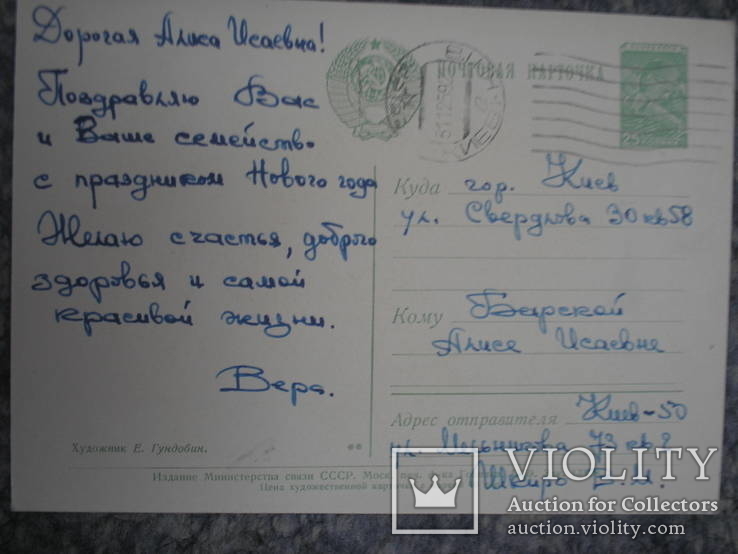 Дорогая Алиса Исаевна!
Поздравляю Вас
и Ваше семейство
с праздником Нового года
Желаю счастья, доброго
здоровья и самой
красивой жизни.
Вера.
Художник Е. Гундобин.
ПОЧТОВАЯ КАРТОЧКА
25
Куда гор. Киев
ул. Свердлова 30 кв 58
Кому Барской
Алисе Исаевне
Адрес отправителя Киев-50
ул. Мельникова 73 кв 2
Шкиро В. И.
Издание Министерства связи СССР. Моск
Цена художественной
VIOLITY
Auction for Collectors
auction.violity.com